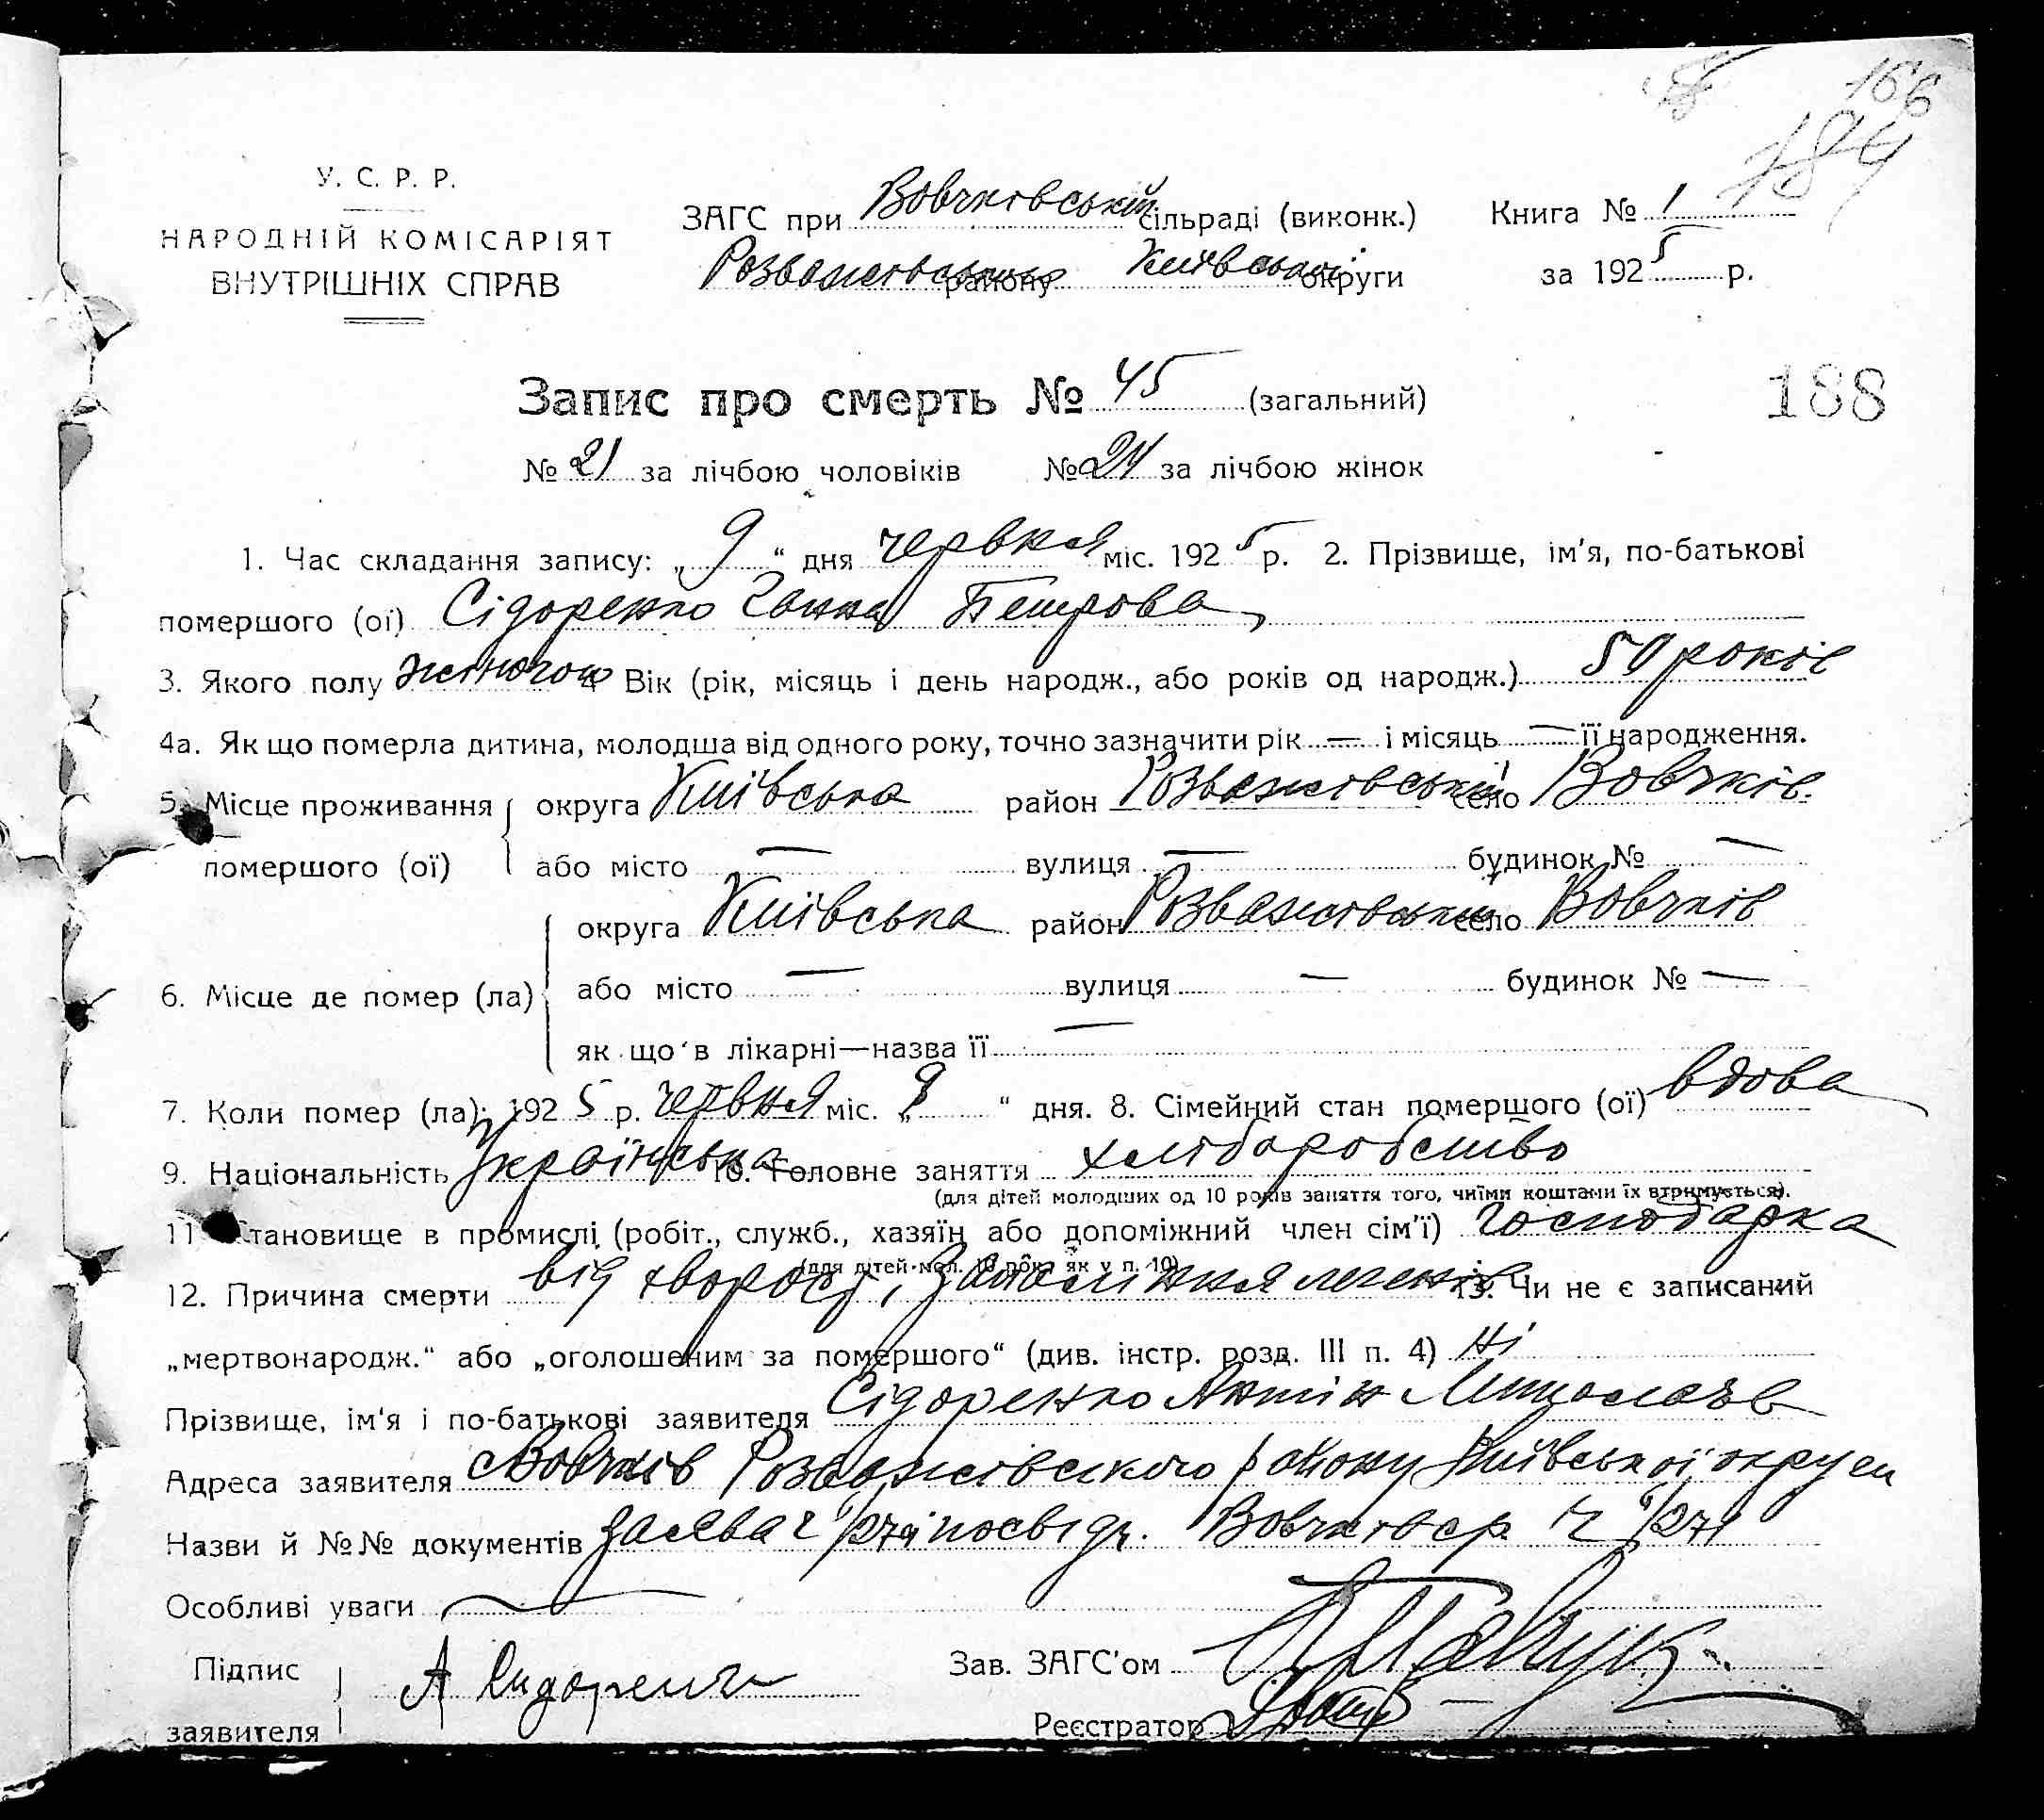 166
184
У. С. Р. Р.
НАРОДНІЙ КОМІСАРІЯТ
ВНУТРІШНІХ СПРАВ
ЗАГС при Вовчківській сільраді (виконк.) Книга № 1
Розважівського району Київської округи за 1925 р.
Запис про смерть № 45 (загальний)
188
№ 21 за лічбою чоловіків № 24 за лічбою жінок
1. Час складання запису: „ 9 “ дня червня міс. 1925 р. 2. Прізвище, ім'я, по-батькові
помершого (ої) Сідоренко Ганна Петрова
3. Якого полу жіночого 4 Вік (рік, місяць і день народж., або років од народж.) 50 років
4а. Як що померла дитина, молодша від одного року, точно зазначити рік — і місяць — її народження.
5. Місце проживання округа Київська район Розважівський село Вовчків
помершого (ої) або місто — вулиця — будинок № —
округа Київська район Розважівський село Вовчків
6. Місце де помер (ла) або місто — вулиця — будинок № —
як що в лікарні—назва її —
7. Коли помер (ла): 1925 р. червня міс. „ 8 “ дня. 8. Сімейний стан помершого (ої) вдова
9. Національність Українська 10. Головне заняття хліборобство
(для дітей молодших од 10 років заняття того, чиїми коштами їх втримується).
11. Становище в промислі (робіт., служб., хазяїн або допоміжний член сім'ї) господарка
(для дітей мол. 10 рок. як у п. 10)
12. Причина смерти від хвороби, запаління легенів 13. Чи не є записаний
„мертвонародж.“ або „оголошеним за помершого“ (див. інстр. розд. III п. 4) Ні
Прізвище, ім'я і по-батькові заявителя Сідоренко Антін
Адреса заявителя с Вовчків Розважівського району Київської округи
Назви й №№ документів заява ч 6/274 і посвідч. Вовчків ср. Ч 6/274
Особливі уваги —
Підпис А Сидоренко Зав. ЗАГС'ом
заявителя Реєстратор